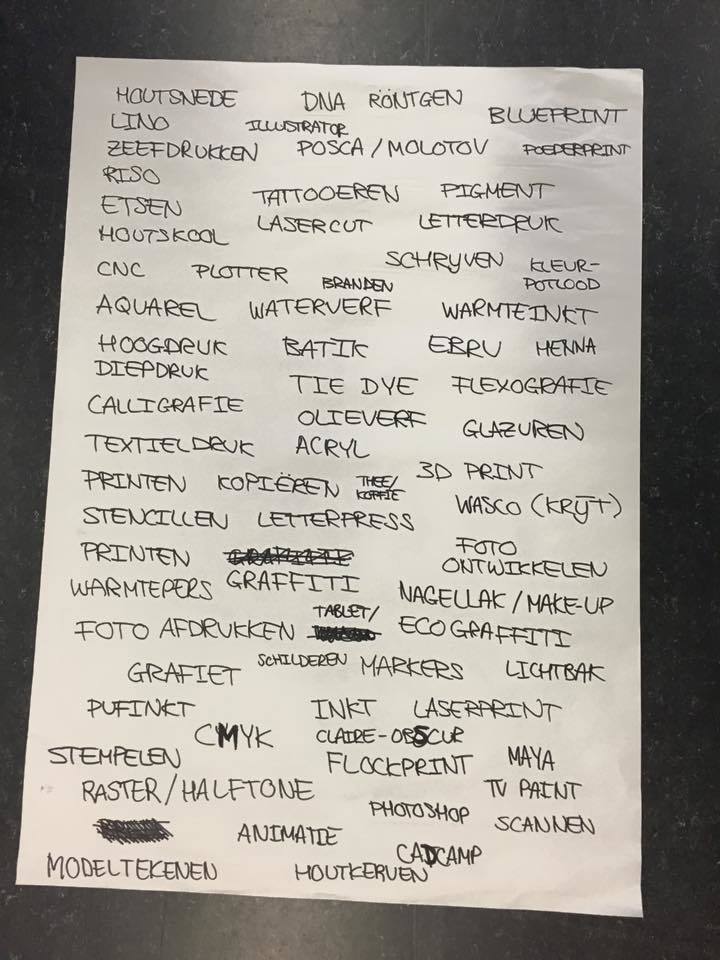 HOUTSNEDE DNA RÖNTGEN
LINO ILLUSTRATOR BLUEPRINT
ZEEFDRUKKEN POSCA / MOLOTOV POEDERPRINT
RISO
ETSEN TATTOOEREN PIGMENT
HOUTSKOOL LASERCUT LETTERDRUK
SCHRYVEN KLEUR-
CNC PLOTTER BRANDEN POTLOOD
AQUAREL WATERVERF WARMTEINKT
HOOGDRUK BATIK EBRU HENNA
DIEPDRUK TIE DYE FLEXOGRAFIE
CALLIGRAFIE OLIEVERF GLAZUREN
TEXTIELDRUK ACRYL
PRINTEN KOPIËREN THEE/ 3D PRINT
KOFFIE WASCO (KRIJT)
STENCILLEN LETTERPRESS
PRINTEN FOTO
ONTWIKKELEN
WARMTEPERS GRAFFITI NAGELLAK / MAKE-UP
FOTO AFDRUKKEN TABLET/ ECO GRAFFITI
GRAFIET SCHILDEREN MARKERS LICHTBAK
PUFINKT INKT LASERPRINT
CMYK CLAIRE-OBSCUR
STEMPELEN FLOCKPRINT MAYA
RASTER/HALFTONE TV PAINT
PHOTOSHOP SCANNEN
ANIMATIE CADCAMP
MODELTEKENEN HOUTKERVEN